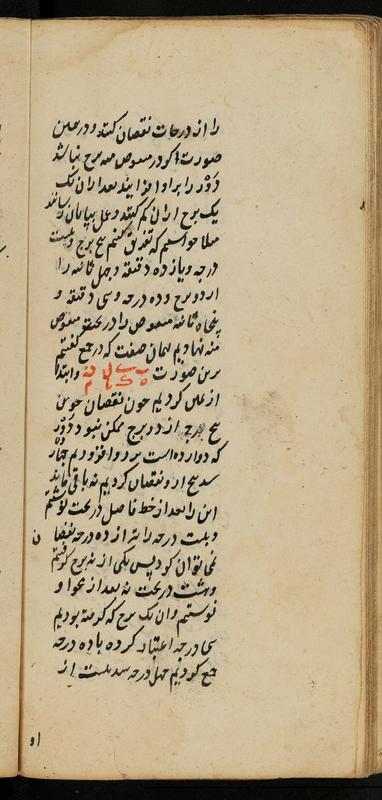 را از درجات نقصان کنند و در همین
صورت اگر در منقوص منه برج نباشد
دَوْر را برو افزایند بعد ازان یک
یک برج ازان کم کنند و عمل بپایان رسانند
مثلا خواستیم که تفریق کنیم پنج برج و بیست
درجه و یازده دقیقه و چهل ثانیه را
از دو برج و ده درجه و سی دقیقه و
پنجاه ثانیه منقوص را در تحت منقوص
منه نهادیم بهمان صفت که در جمع گفتیم
برین صورت و ابتدا
از کردیم چون نقصان چون
پنج برج از دو برج ممکن نبود دَوْر
که دوازده است برو افزودیم چهارده
شد پنج ازو نقصان کردیم نه باقی ماند
این را بعد از خط فاصل در تحت نوشتیم
و بیست درجه را نه از ده درجه نقصان
نمی توان کرد پس یکی از نه برج گرفتیم
و هشت در تحت نه بعد از محو او
نوشتیم و ان یک برج که گرفته بودیم
سی درجه اعتبار کرده با ده درجه
جمع کردیم چهل درجه شد بیست از
او